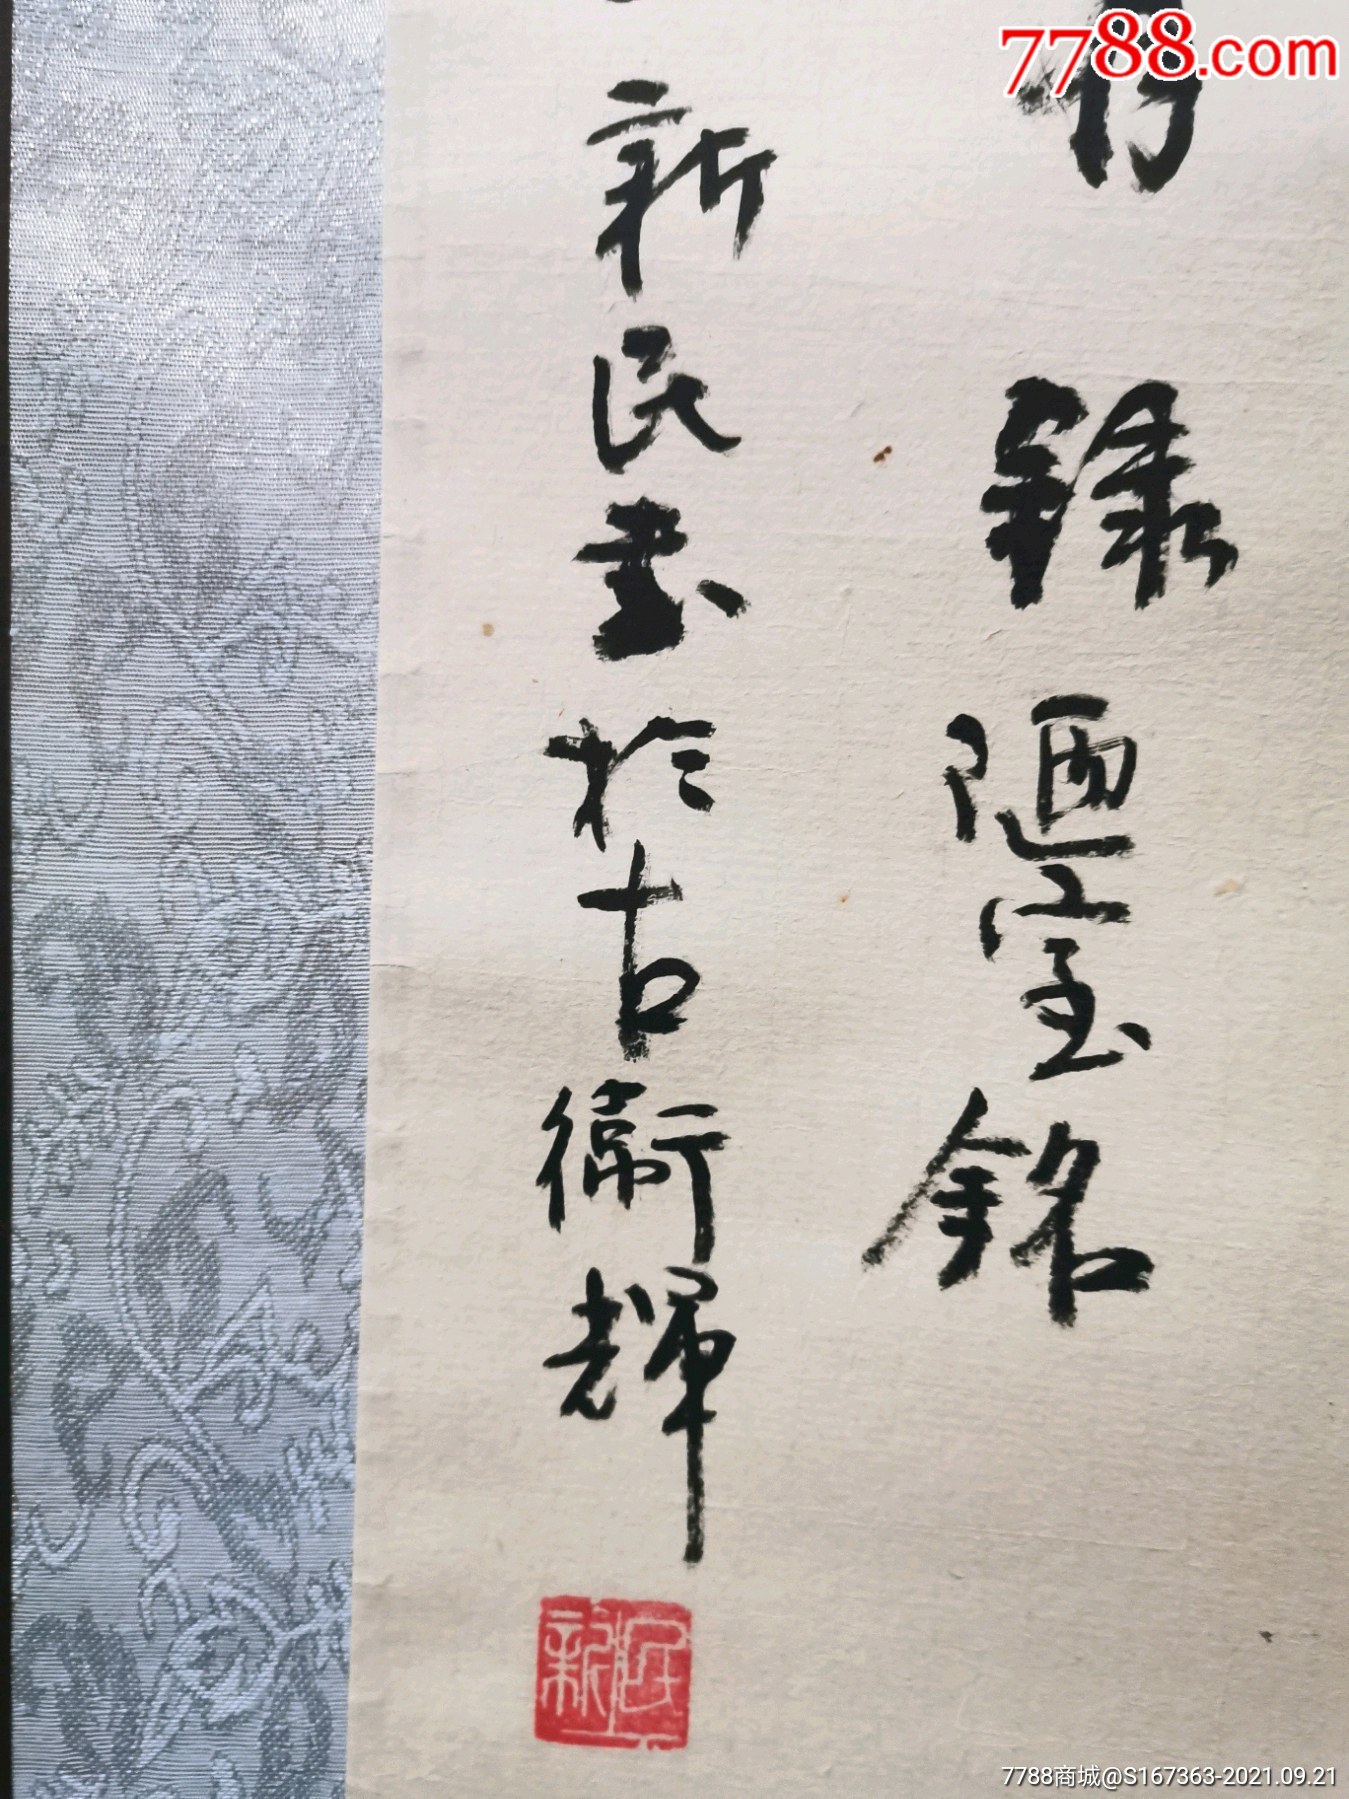 7788.com
錄陋室銘
新民書於古衛輝
新民
7788商城@S167363-2021.09.21